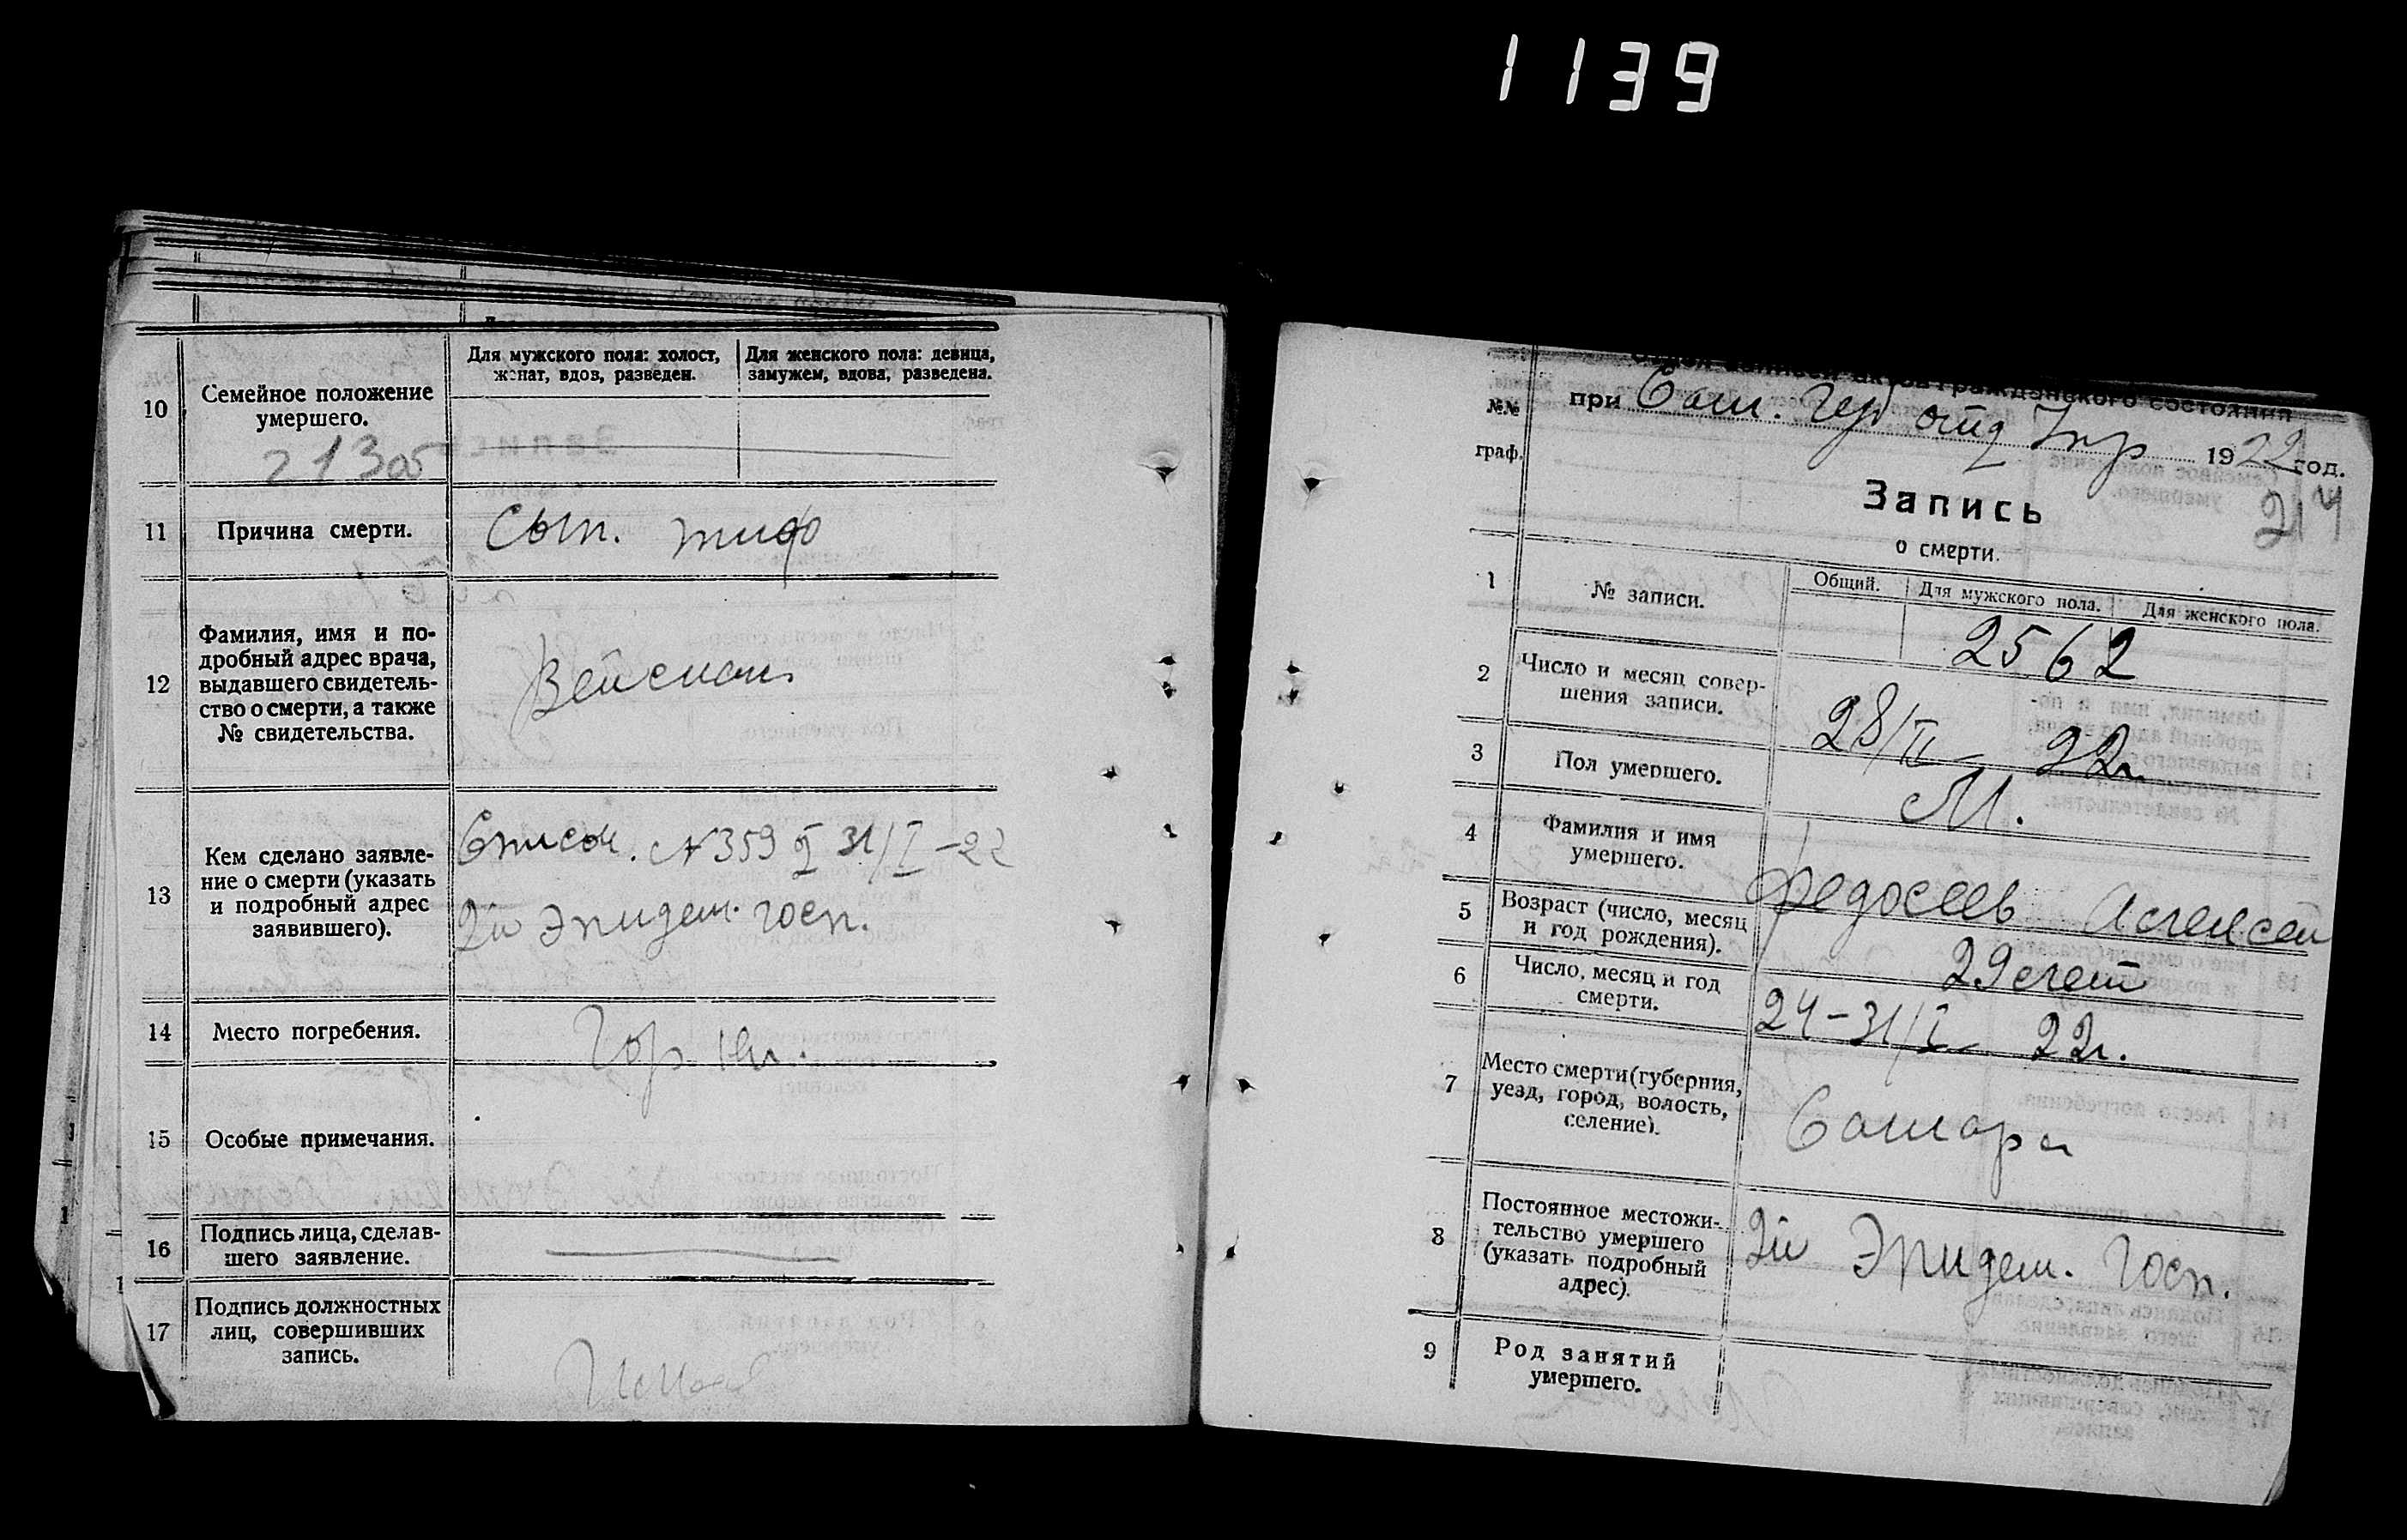 1139
10
Семейное положение
умершего.
21305
Для мужского пола: холост,
женат, вдов, разведен.
Для женского пола: девица,
замужем, вдова, разведена.
11
Причина смерти.
Сып. тиф
12
Фамилия, имя и по-
дробный адрес врача,
выдавшего свидетель-
ство о смерти, а также
№ свидетельства.
Вейсман
13
Кем сделано заявле-
ние о смерти (указать
и подробный адрес
заявившего).
Список. № 359 31/I-22
2й Эпидем. госп.
14
Место погребения.
Гор. кл.
15
Особые примечания.
16
Подпись лица, сделав-
шего заявление.
17
Подпись должностных
лиц, совершивших
запись.
записей актов гражданского состояния
№№
граф.
при Сам. Губ отд Упр 1922 год.
214
Запись
о смерти.
1
№ записи.
Общий.
Для мужского пола.
Для женского пола.
2562
2
Число и месяц совер-
шения записи.
28/II - 22г.
3
Пол умершего.
М.
4
Фамилия и имя
умершего.
Федосеев Алексей
5
Возраст (число, месяц
и год рождения).
29 лет
6
Число, месяц и год
смерти.
24-31/I - 22г.
7
Место смерти (губерния,
уезд, город, волость,
селение).
Самара
8
Постоянное местожи-
тельство умершего
(указать подробный
адрес).
2й Эпидем. Госп.
9
Род занятий
умершего.